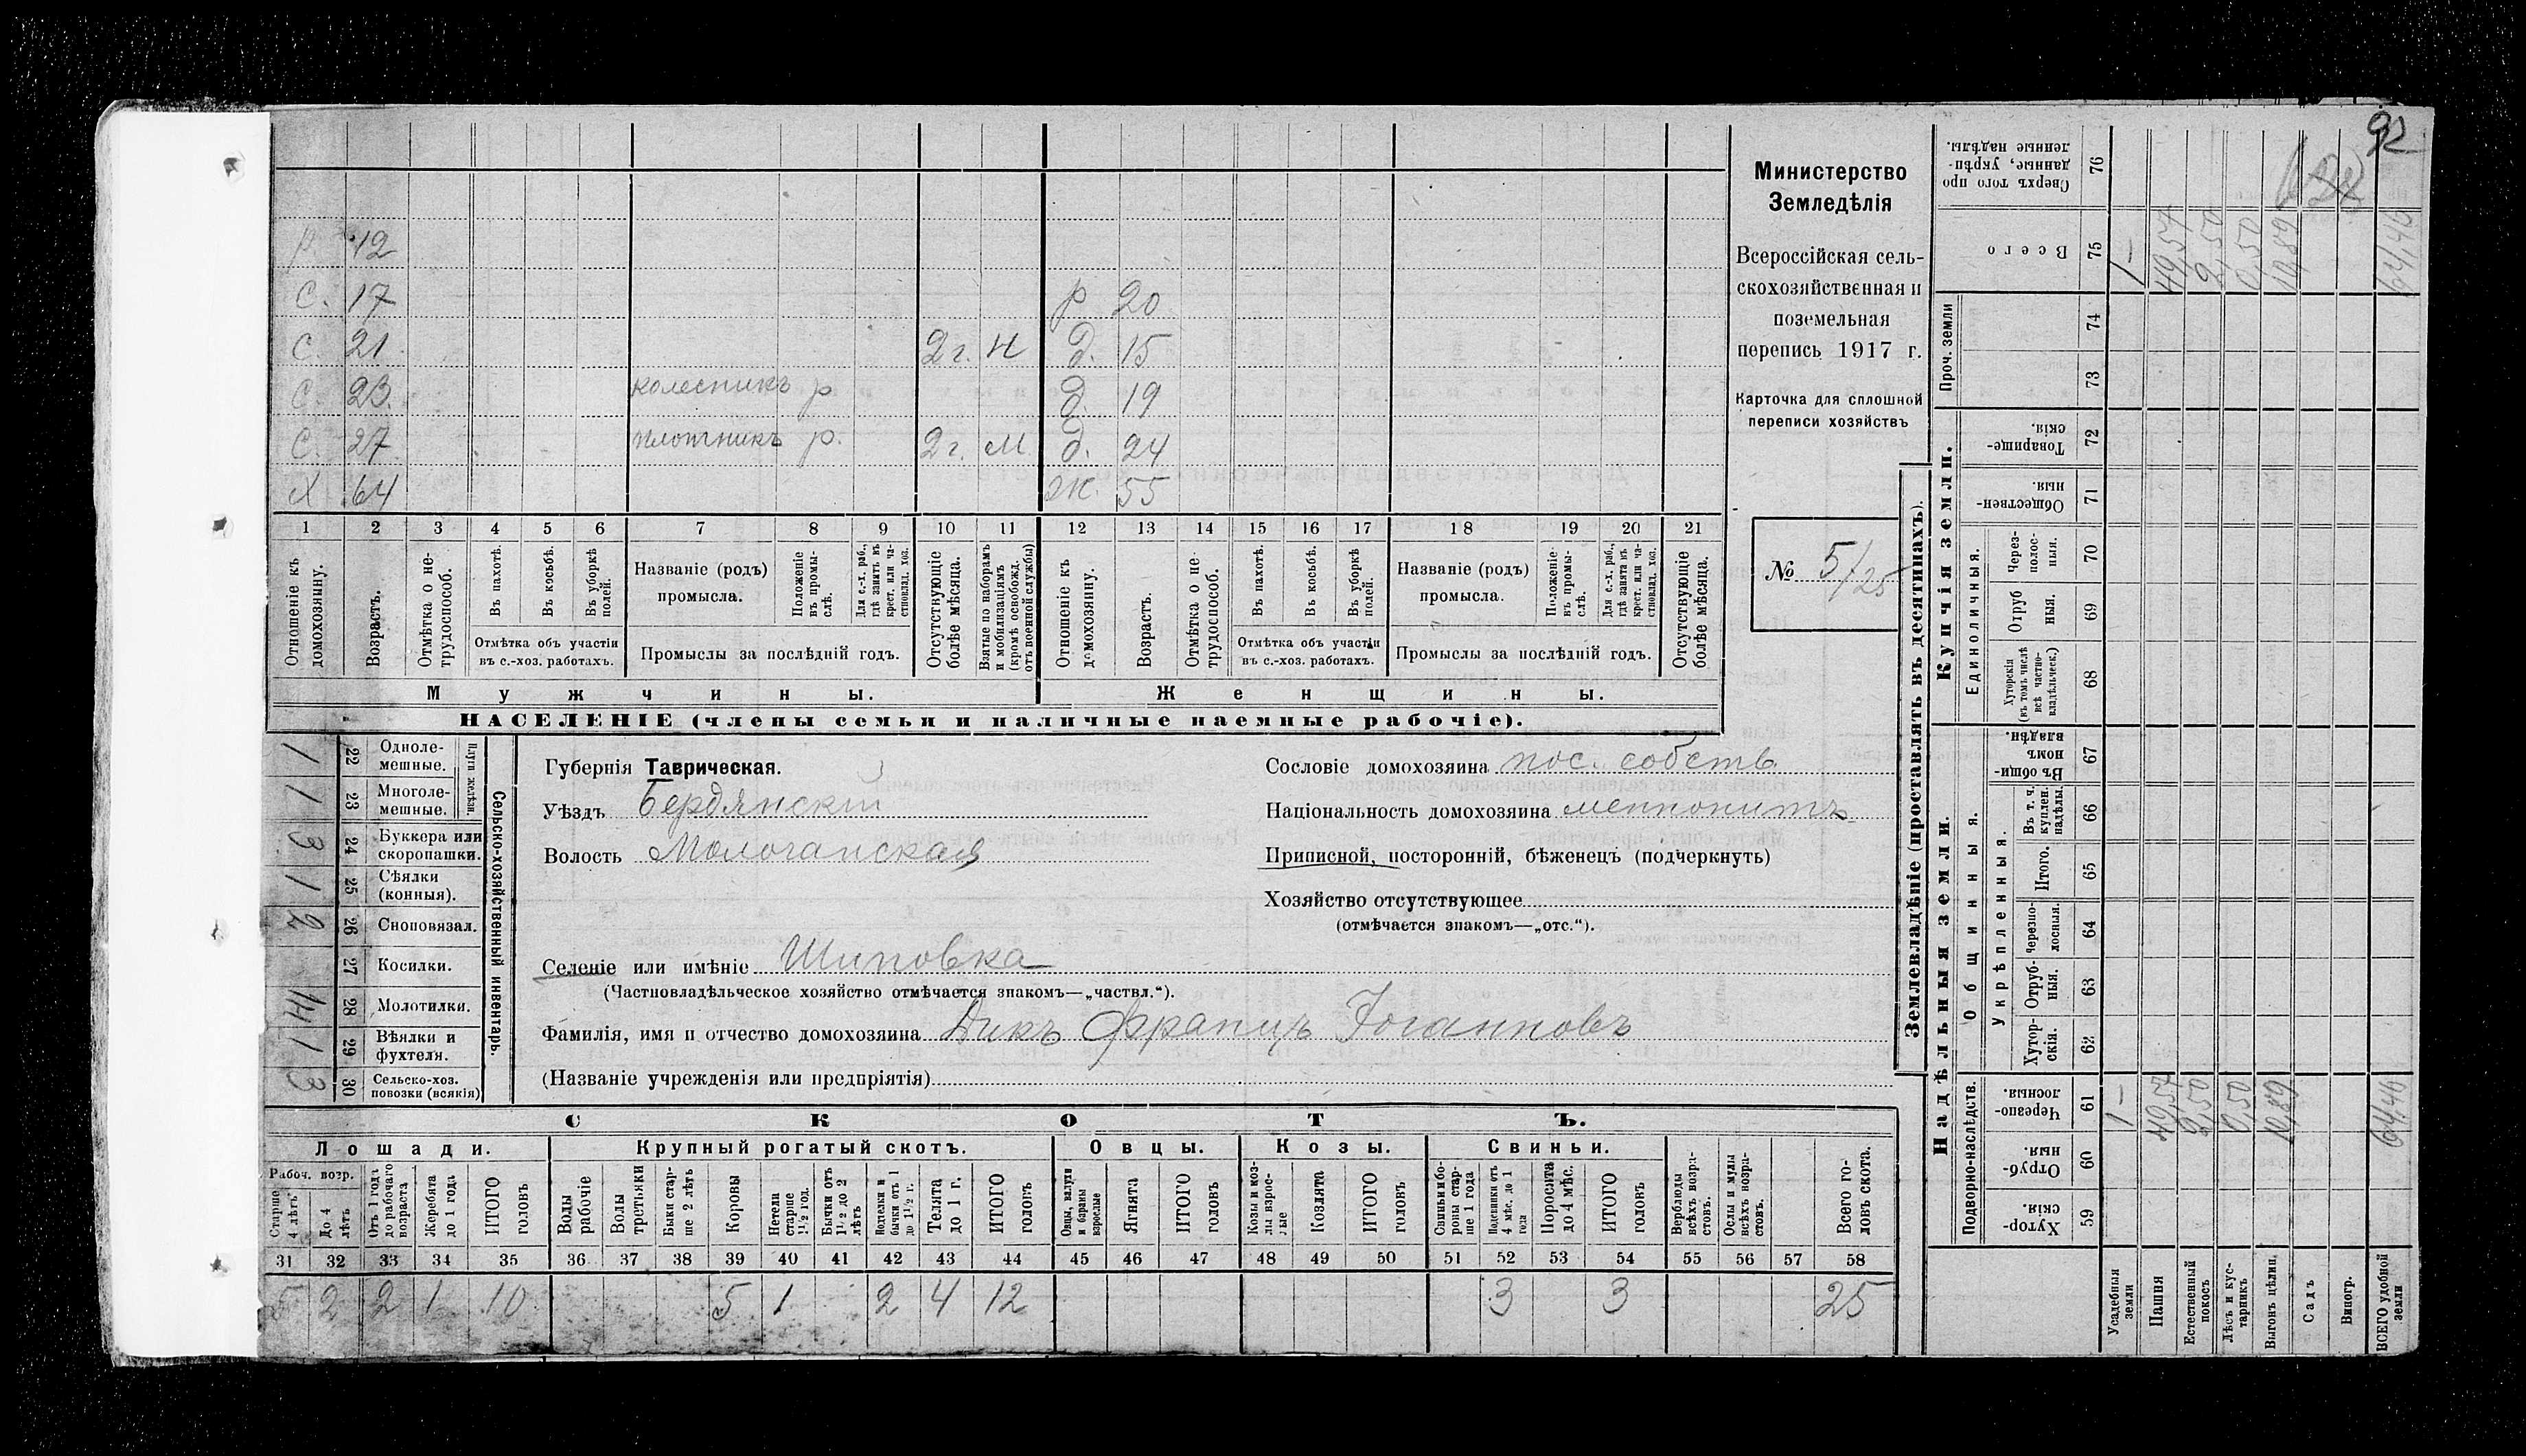 92
р. 12
с. 17 р 20
с. 21 2 г. Н д. 15
с. 23. колесникъ р д. 19
с. 27 плотникъ р. 2 г. М д. 24
Х 64 Ж. 55
1 2 3 4 5 6 7 8 9 10 11 12 13 14 15 16 17 18 19 20 21
Отношеніе къ домохозяину.
Возрастъ.
Отмѣтка о не-трудоспособ.
Въ пахотѣ.
Въ косьбѣ.
Въ уборкѣ полей.
Отмѣтка объ участіи въ с.-хоз. работахъ.
Названіе (родъ) промысла.
Положеніе въ промы-слѣ.
Для с.-х. раб., гдѣ занятъ въ крест. или ча-стновлад. хоз.
Промыслы за послѣдній годъ.
Отсутствующіе болѣе мѣсяца.
Взятые по наборамъ и мобилизаціямъ (кромѣ освобожд. отъ военной службы)
Отношеніе къ домохозяину.
Возрастъ.
Отмѣтка о не трудоспособ.
Въ пахотѣ.
Въ косьбѣ.
Въ уборкѣ полей.
Отмѣтка объ участіи въ с.-хоз. работахъ.
Названіе (родъ) промысла.
Положеніе въ промы-слѣ.
Для с.-х. раб., гдѣ занята въ крест. или ча-стновлад. хоз.
Промыслы за послѣдній годъ.
Отсутствующіе болѣе мѣсяца.
Мужчины.
Женщины.
НАСЕЛЕНІЕ (члены семьи и наличные наемные рабочіе).
Министерство
Земледѣлія
Всероссійская сель-
скохозяйственная и
поземельная
перепись 1917 г.
Карточка для сплошной
переписи хозяйствъ
№ 5/25
Сельско-хозяйственный инвентарь.
Плуги желѣзн.
1 22 Одноле-мешные.
1 23 Многоле-мешные.
3 24 Буккера или скоропашки.
1 25 Сѣялки (конныя).
2 26 Сноповязал.
27 Косилки.
28 Молотилки.
1 29 Вѣялки и фухтеля.
3 30 Сельско-хоз. повозки (всякія)
Губернія Таврическая.
Уѣздъ Бердянскій
Волость Молочанская
Селеніе или имѣніе Шиповка
(Частновладѣльческое хозяйство отмѣчается знакомъ—„частвл.“).
Фамилія, имя и отчество домохозяина Дикъ Францъ Іоганновъ
(Названіе учрежденія или предпріятія)
Сословіе домохозяина пос. собств.
Національность домохозяина меннонитъ
Приписной, посторонній, бѣженецъ (подчеркнуть)
Хозяйство отсутствующее
(отмѣчается знакомъ—„отс.“).
СКОТЪ.
Лошади. Крупный рогатый скотъ. Овцы. Козы. Свиньи.
Рабоч. возр.
Старше 4 лѣтъ
До 4 лѣтъ
Отъ 1 года до рабочаго возраста
Жеребята до 1 года
ИТОГО головъ
Волы рабочіе
Волы третьяки
Быки стар-ше 2 лѣтъ
Коровы
Нетели старше 1 1/2 год.
Бычки отъ 1 1/2 до 2 лѣтъ
Подтелки и бычки отъ 1 до 1 1/2 г.
Телята до 1 г.
ИТОГО головъ
Овцы, валухи и бараны взрослые
Ягнята
ИТОГО головъ
Козы и коз-лы взрос-лые
Козлята
ИТОГО головъ
Свиньи и бо-ровы стар-ше 1 года
Подсвинки отъ 4 мѣс. до 1 года
Поросята до 4 мѣс.
ИТОГО головъ
Верблюды всѣхъ возра-стовъ.
Ослы и мулы всѣхъ возра-стовъ.
Всего го-ловъ скота.
31 32 33 34 35 36 37 38 39 40 41 42 43 44 45 46 47 48 49 50 51 52 53 54 55 56 57 58
5 2 2 1 10 5 1 2 4 12 3 3 25
Землевладѣніе (проставлять въ десятинахъ).
Купчія земли.
Надѣльныя земли.
Сверхъ того про данные, укрѣп-ленные надѣлы. 76
Всего 75 1- 49,57 2,50 0,50 10,89 64,46
Проч. земли 74
73
Товарище-скія. 72
Обществен-ныя. 71
Единоличныя.
Через-полос-ныя. 70
Отруб ныя. 69
Хуторскія (въ томъ числѣ всѣ частно-владѣльческ.) 68
Общинныя.
Въ общи-номъ владѣн. 67
Укрѣпленныя.
Въ т. ч. куплен. надѣлы. 66
Итого. 65
Черезпо-лосныя. 64
Отруб-ныя. 63
Хутор-скія. 62
Подворно-наслѣдств.
Черезпо-лосныя. 61 1- 49,57 2,50 0,50 10,89 64,46
Отруб-ныя. 60
Хутор-скія. 59
Усадебныя земли
Пашня
Естественный покосъ
Лѣсъ и кус-тарникъ
Выгонъ цѣлин.
Садъ
Виногр.
ВСЕГО удобной земли